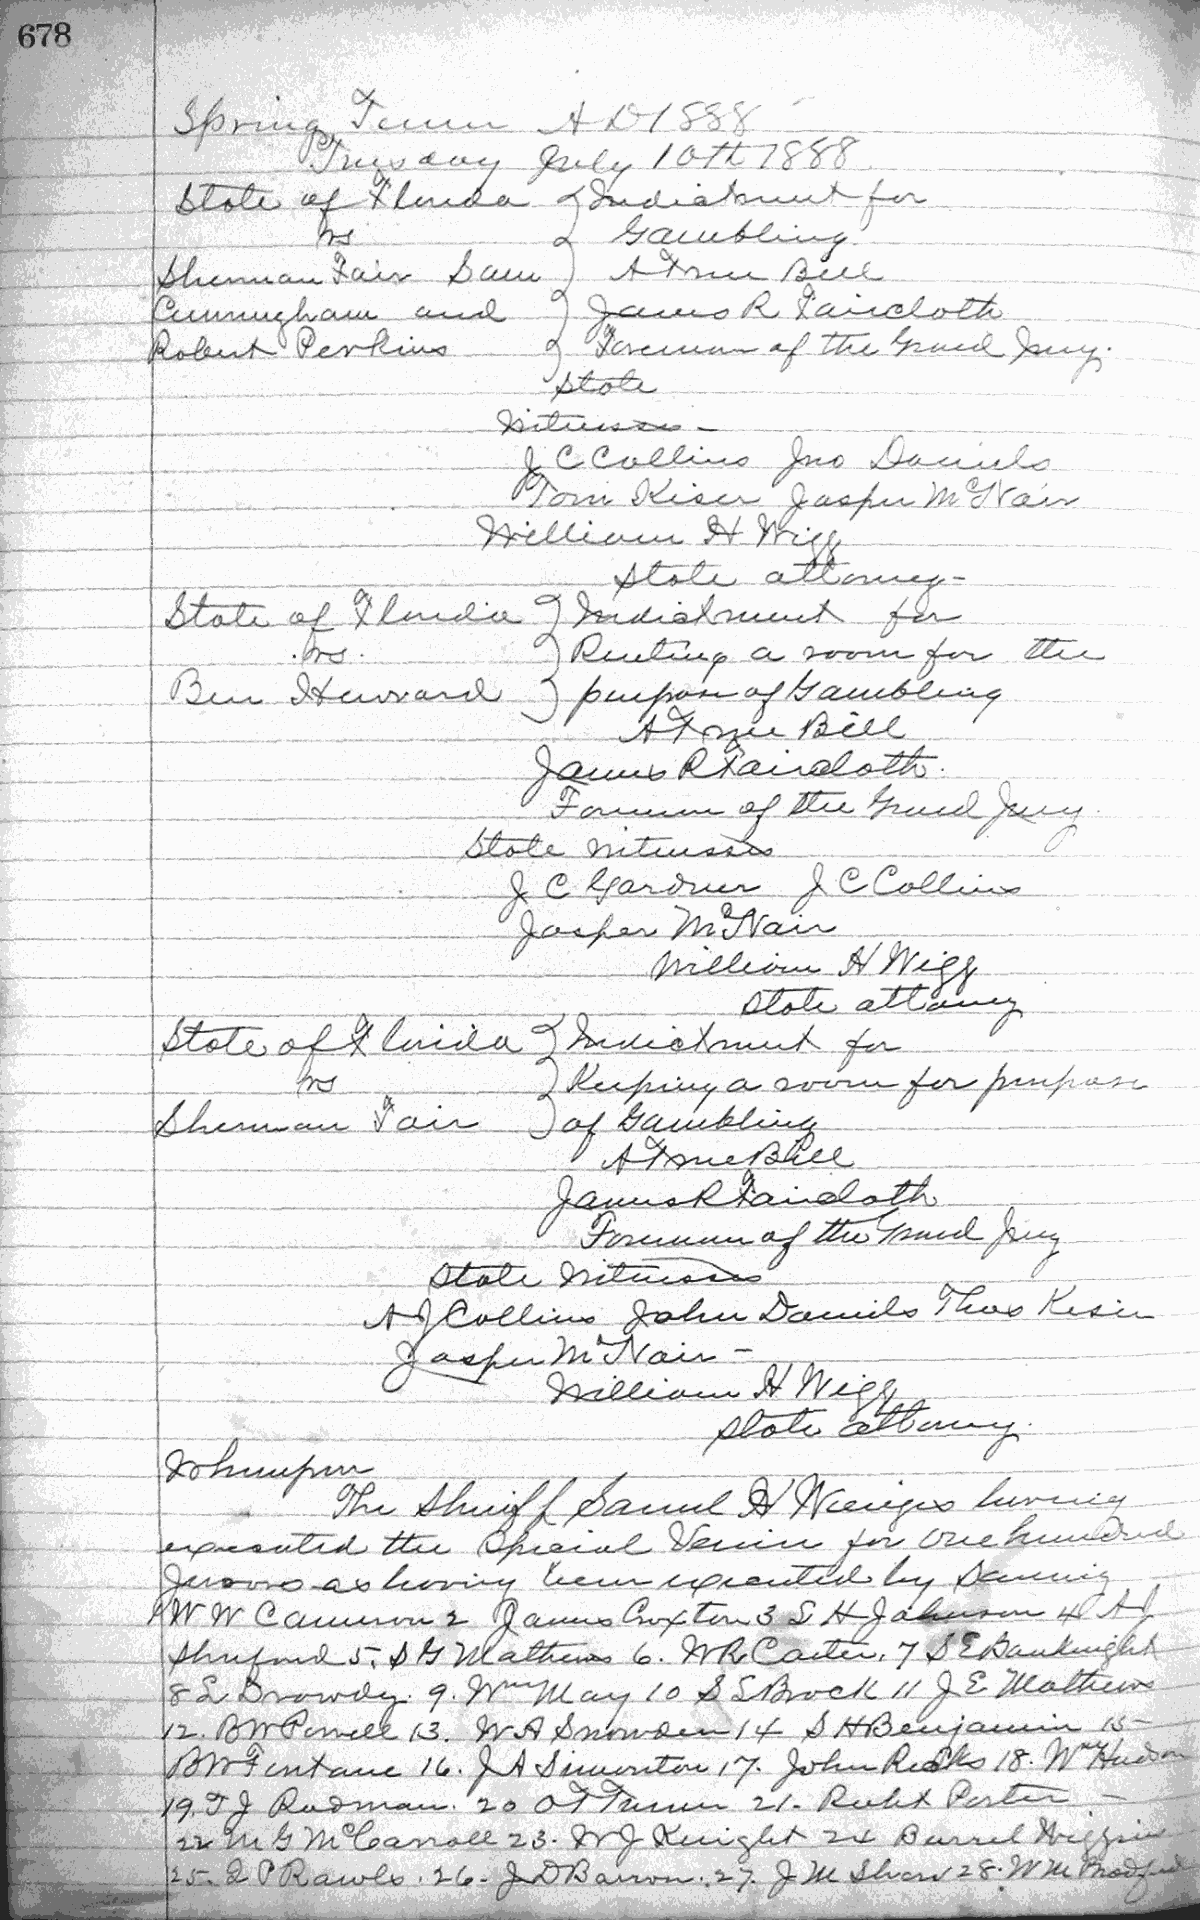 678
Spring Term A D 1888
Tuesday July 10th 1888
State of Florida } Indictment for
vs } Gambling
Sherman Fair Sam } A True Bill
Cunningham and } James R Faircloth
Robert Perkins } Foreman of the Grand Jury.
State
Witnesses -
J C Collins Jno Daniels
Tom Kiser Jasper McNair
William H Wigg
State attorney -
State of Florida } Indictment for
vs } Renting a room for the
Ben Howard } purpose of Gambling
A True Bill
James R Faircloth.
Foreman of the Grand Jury.
State Witnesses
J C Gardner J C Collins
Jasper McNair
William H Wigg
State attorney
State of Florida } Indictment for
vs } Keeping a room for purpose
Sherman Fair } of Gambling
A True Bill
James R Faircloth
Foreman of the Grand Jury
State Witnesses
A J Collins John Daniels Thos Kiser
Jasper McNair -
William H Wigg
State attorney.
Whereupon
The Sheriff Samuel H having
executed the Special Venire for one hundred
Jurors as having been executed by
W W Cameron 2 James Croxton 3 S H Johnson 4 A J
5. S G Mathews 6. W R Carter. 7 S E Bauknight
8 L Drawdy. 9. Wm May 10 S L Brock 11 J E Mathews
12. B W Powell 13. W A Snowden 14 S H Benjamin 15-
B W Fontane 16. J A Simonton 17. John Ricks 18. Wm Hudson
19. T J Rodman. 20 O T Turner 21. Robt Porter -
22 M G McCarroll 23. W J Knight 24 Burrel Higgins
25. Q P Rawls. 26. J D Barron. 27. J M Shaw 28. W M Bradford